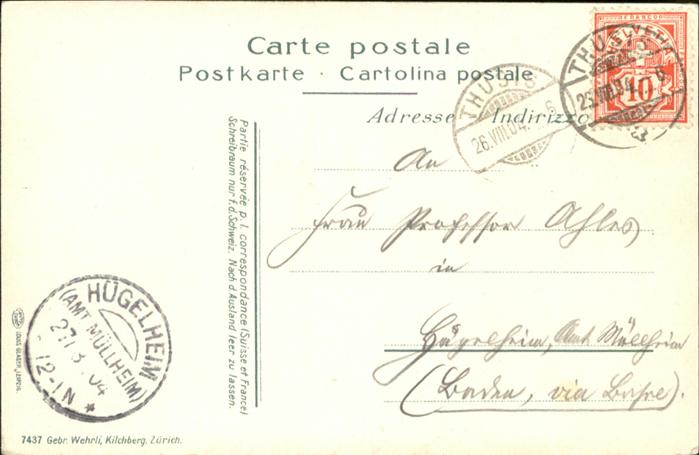 Carte postale
Postkarte · Cartolina postale
Adresse Indirizzo
HELVETIA
FRANCO
10
THUSIS
26.VIII.04.
THUSIS
VIII.04
An
Frau Professor Ahles
in
Hügelheim, Amt Müllheim
(Baden, via Basel)
Partie réservée p. l. correspondance (Suisse et France)
Schreibraum nur f. d. Schweiz. Nach d. Ausland leer zu lassen.
HÜGELHEIM
(AMT MÜLLHEIM)
27. 8. 04
12-1N
LOUIS GLASER, LEIPZIG.
7437 Gebr. Wehrli, Kilchberg. Zürich.